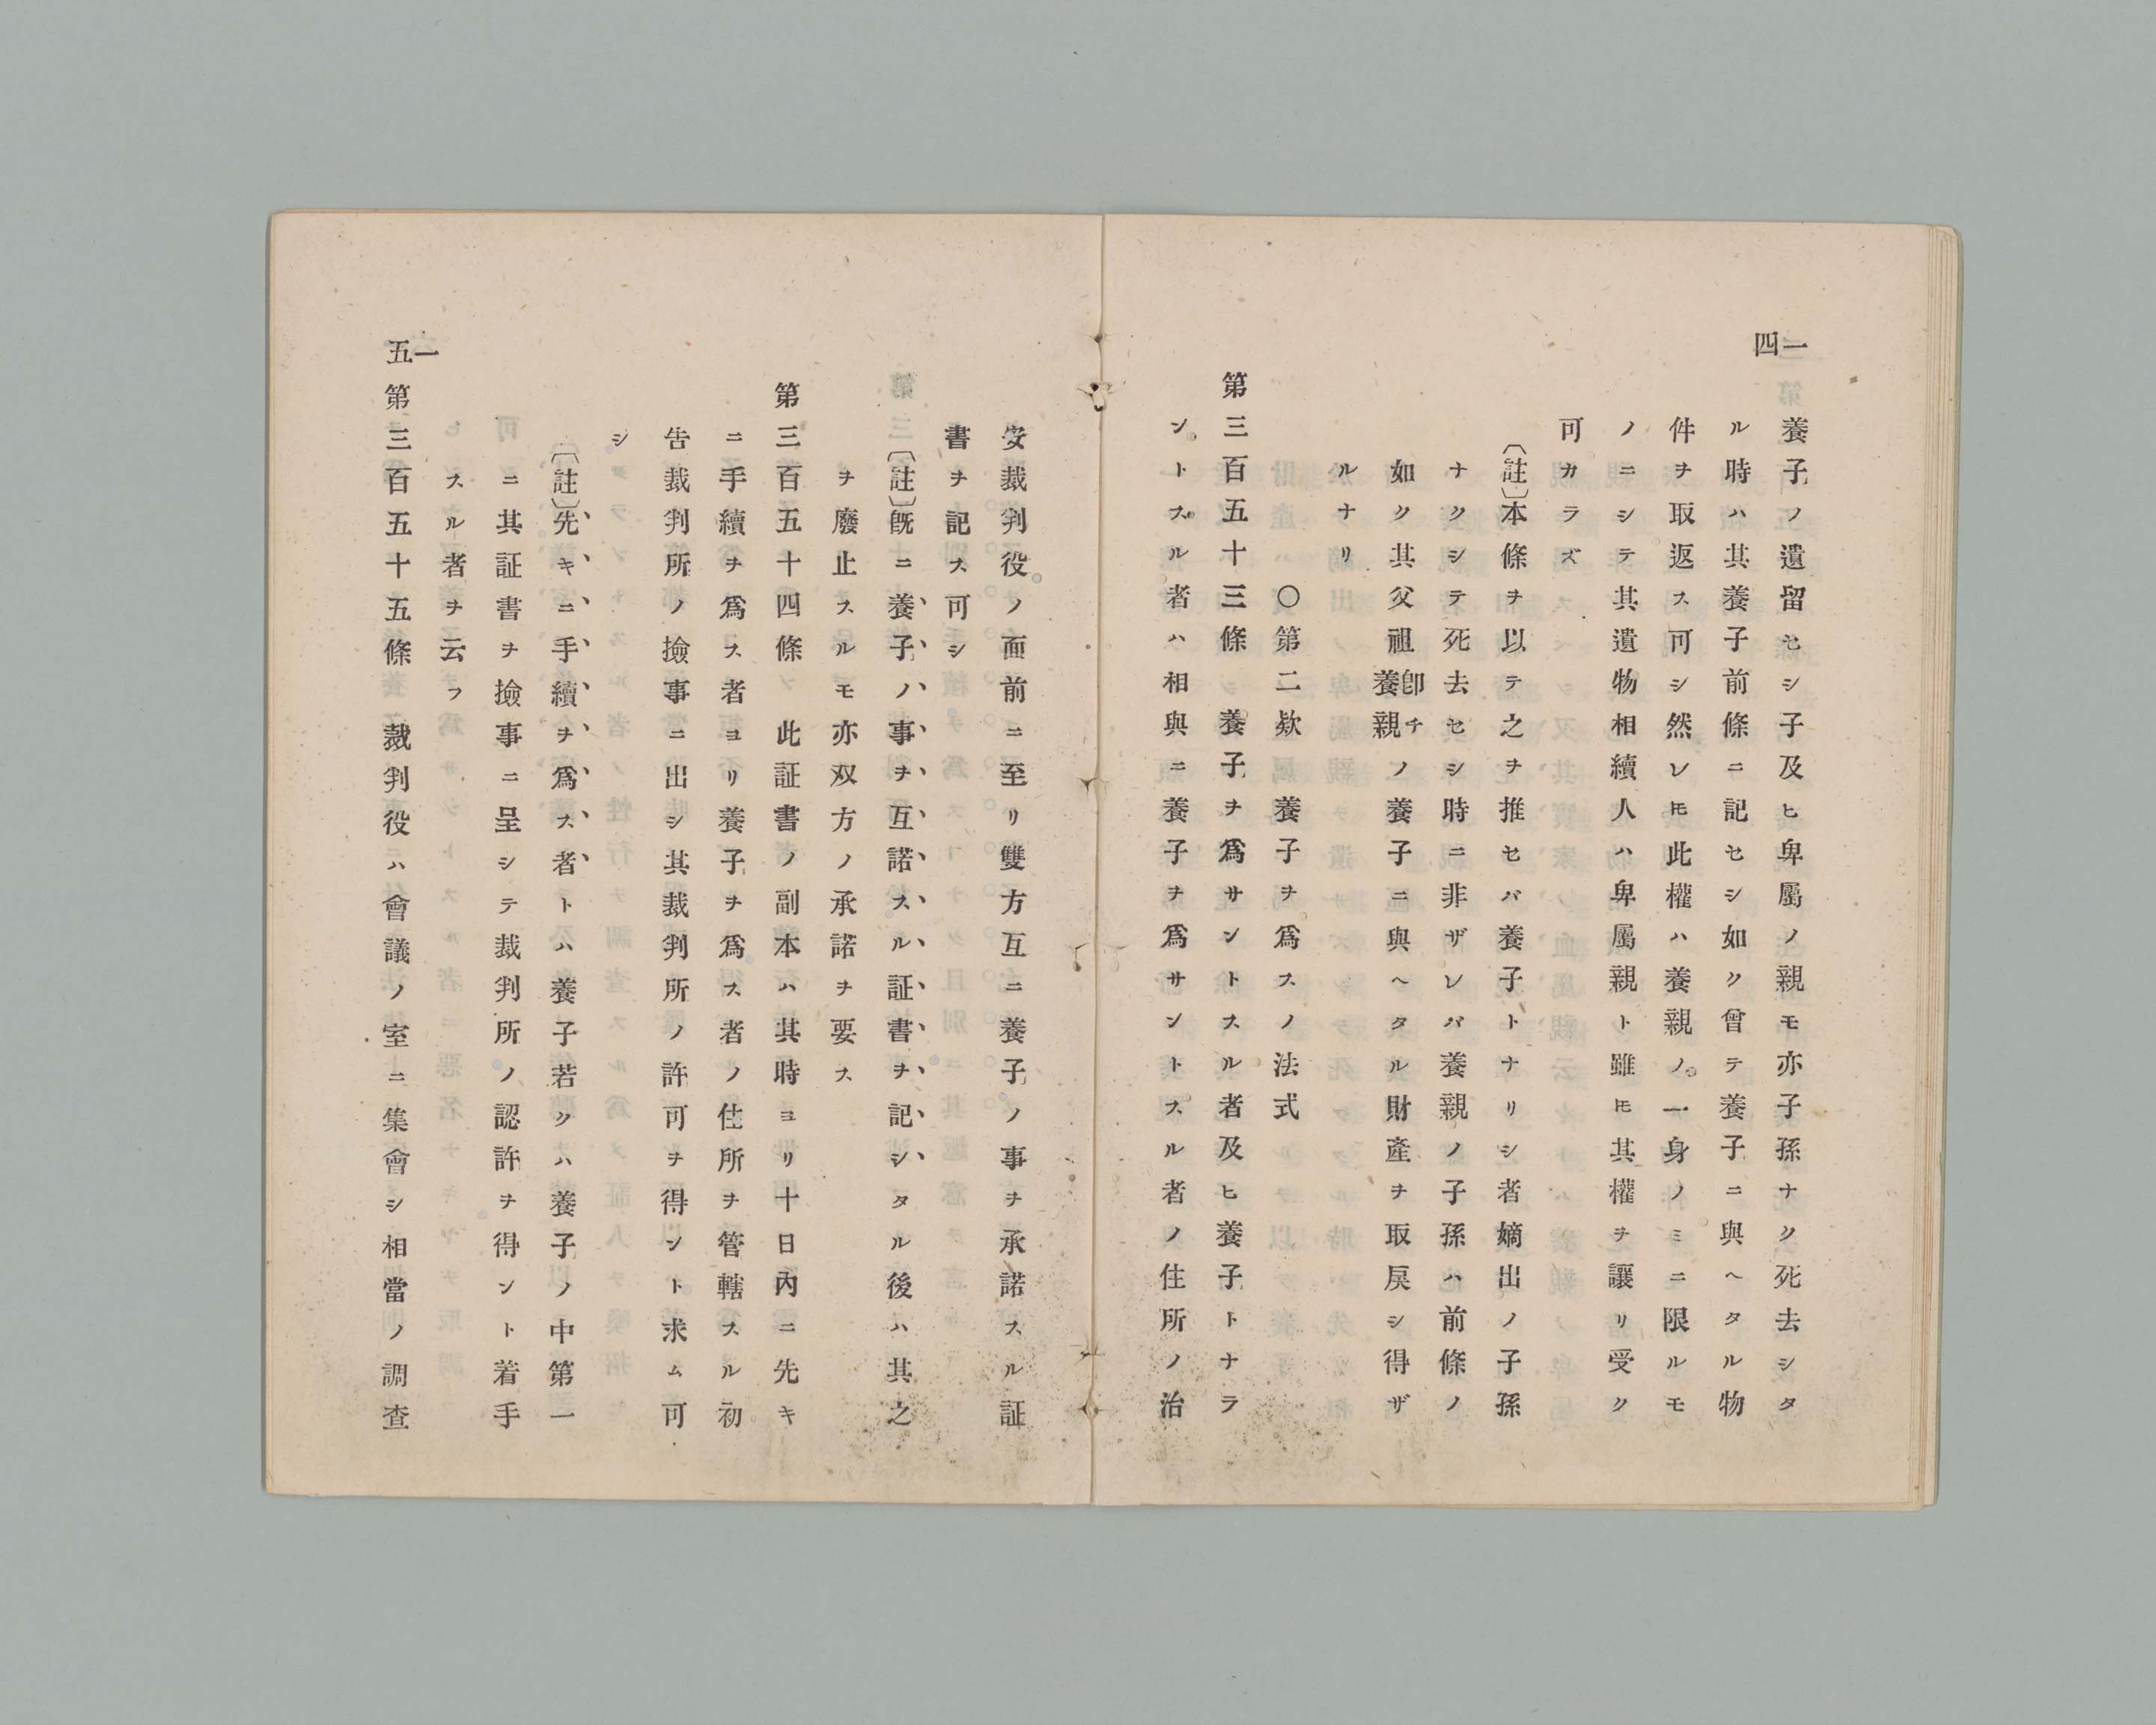 一四
養子ノ遺留セシ子及ヒ卑屬ノ親モ亦子孫ナク死去シタ
ル時ハ其養子前條ニ記セシ如ク曾テ養子ニ與ヘタル物
件ヲ取返ス可シ然レ𪜈此權ハ養親ノ一身ノミニ限ルモ
ノニシテ其遺物相續人ハ卑屬親ト雖𪜈其權ヲ讓リ受ク
可カラズ
〔註〕本條ヲ以テ之ヲ推セバ養子トナリシ者嫡出ノ子孫
ナクシテ死去セシ時ニ非ザレバ養親ノ子孫ハ前條ノ
如ク其父祖卽チ養親ノ養子ニ與ヘタル財產ヲ取戾シ得ザ
ルナリ
○第二欵 養子ヲ爲スノ法式
第三百五十三條 養子ヲ爲サントスル者及ヒ養子トナラ
ントスル者ハ相與ニ養子ヲ爲サントスル者ノ住所ノ治
安裁判役ノ面前ニ至リ雙方互ニ養子ノ事ヲ承諾スル証
書ヲ記ス可シ
〔註〕旣ニ養子ノ事ヲ互諾スル証書ヲ記シタル後ハ其之
ヲ廢止スルモ亦双方ノ承諾ヲ要ス
第三百五十四條 此証書ノ副本ハ其時ヨリ十日內ニ先キ
ニ手續ヲ爲ス者ヨリ養子ヲ爲ス者ノ住所ヲ管轄スル初
告裁判所ノ撿事ニ出シ其裁判所ノ許可ヲ得ント求ム可
シ
〔註〕先キニ手續ヲ爲ス者トハ養子若クハ養子ノ中第一
ニ其証書ヲ撿事ニ呈シテ裁判所ノ認許ヲ得ント着手
スル者ヲ云フ
第三百五十五條 裁判役ハ會議ノ室ニ集會シ相當ノ調査
一五